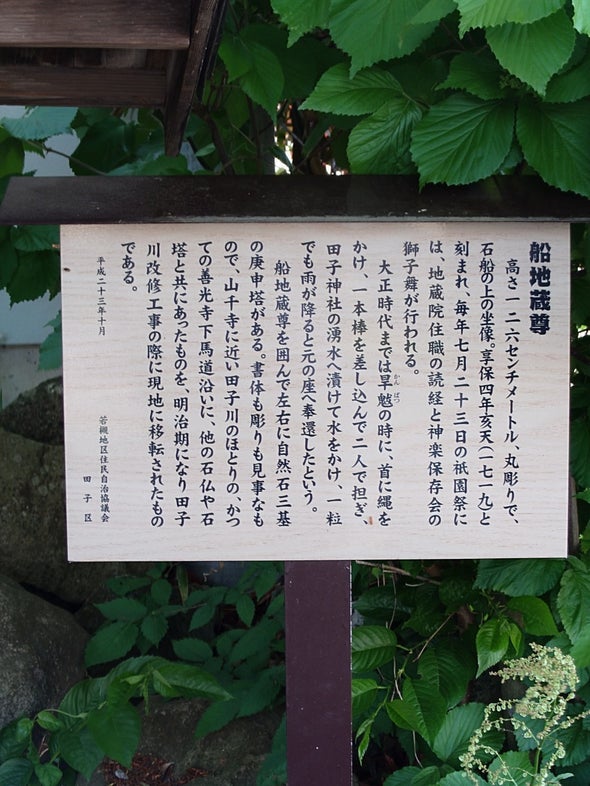 船地蔵尊
高さ一二六センチメートル、丸彫りで、
石船の上の坐像。享保四年亥天(一七一九)と
刻まれ、毎年七月二十三日の祇園祭に
は、地蔵院住職の読経と神楽保存会の
獅子舞が行われる。
大正時代までは旱魃の時に、首に縄を
かんばつ
かけ、一本棒を差し込んで二人で担ぎ、
田子神社の湧水へ漬けて水をかけ、一粒
でも雨が降ると元の座へ奉還したという。
船地蔵尊を囲んで左右に自然石三基
の庚申塔がある。書体も彫りも見事なも
ので、山千寺に近い田子川のほとりの、かつ
ての善光寺下馬道沿いに、他の石仏や石
塔と共にあったものを、明治期になり田子
川改修工事の際に現地に移転されたもの
である。
平成二十三年十月
若槻地区住民自治協議会
田子区